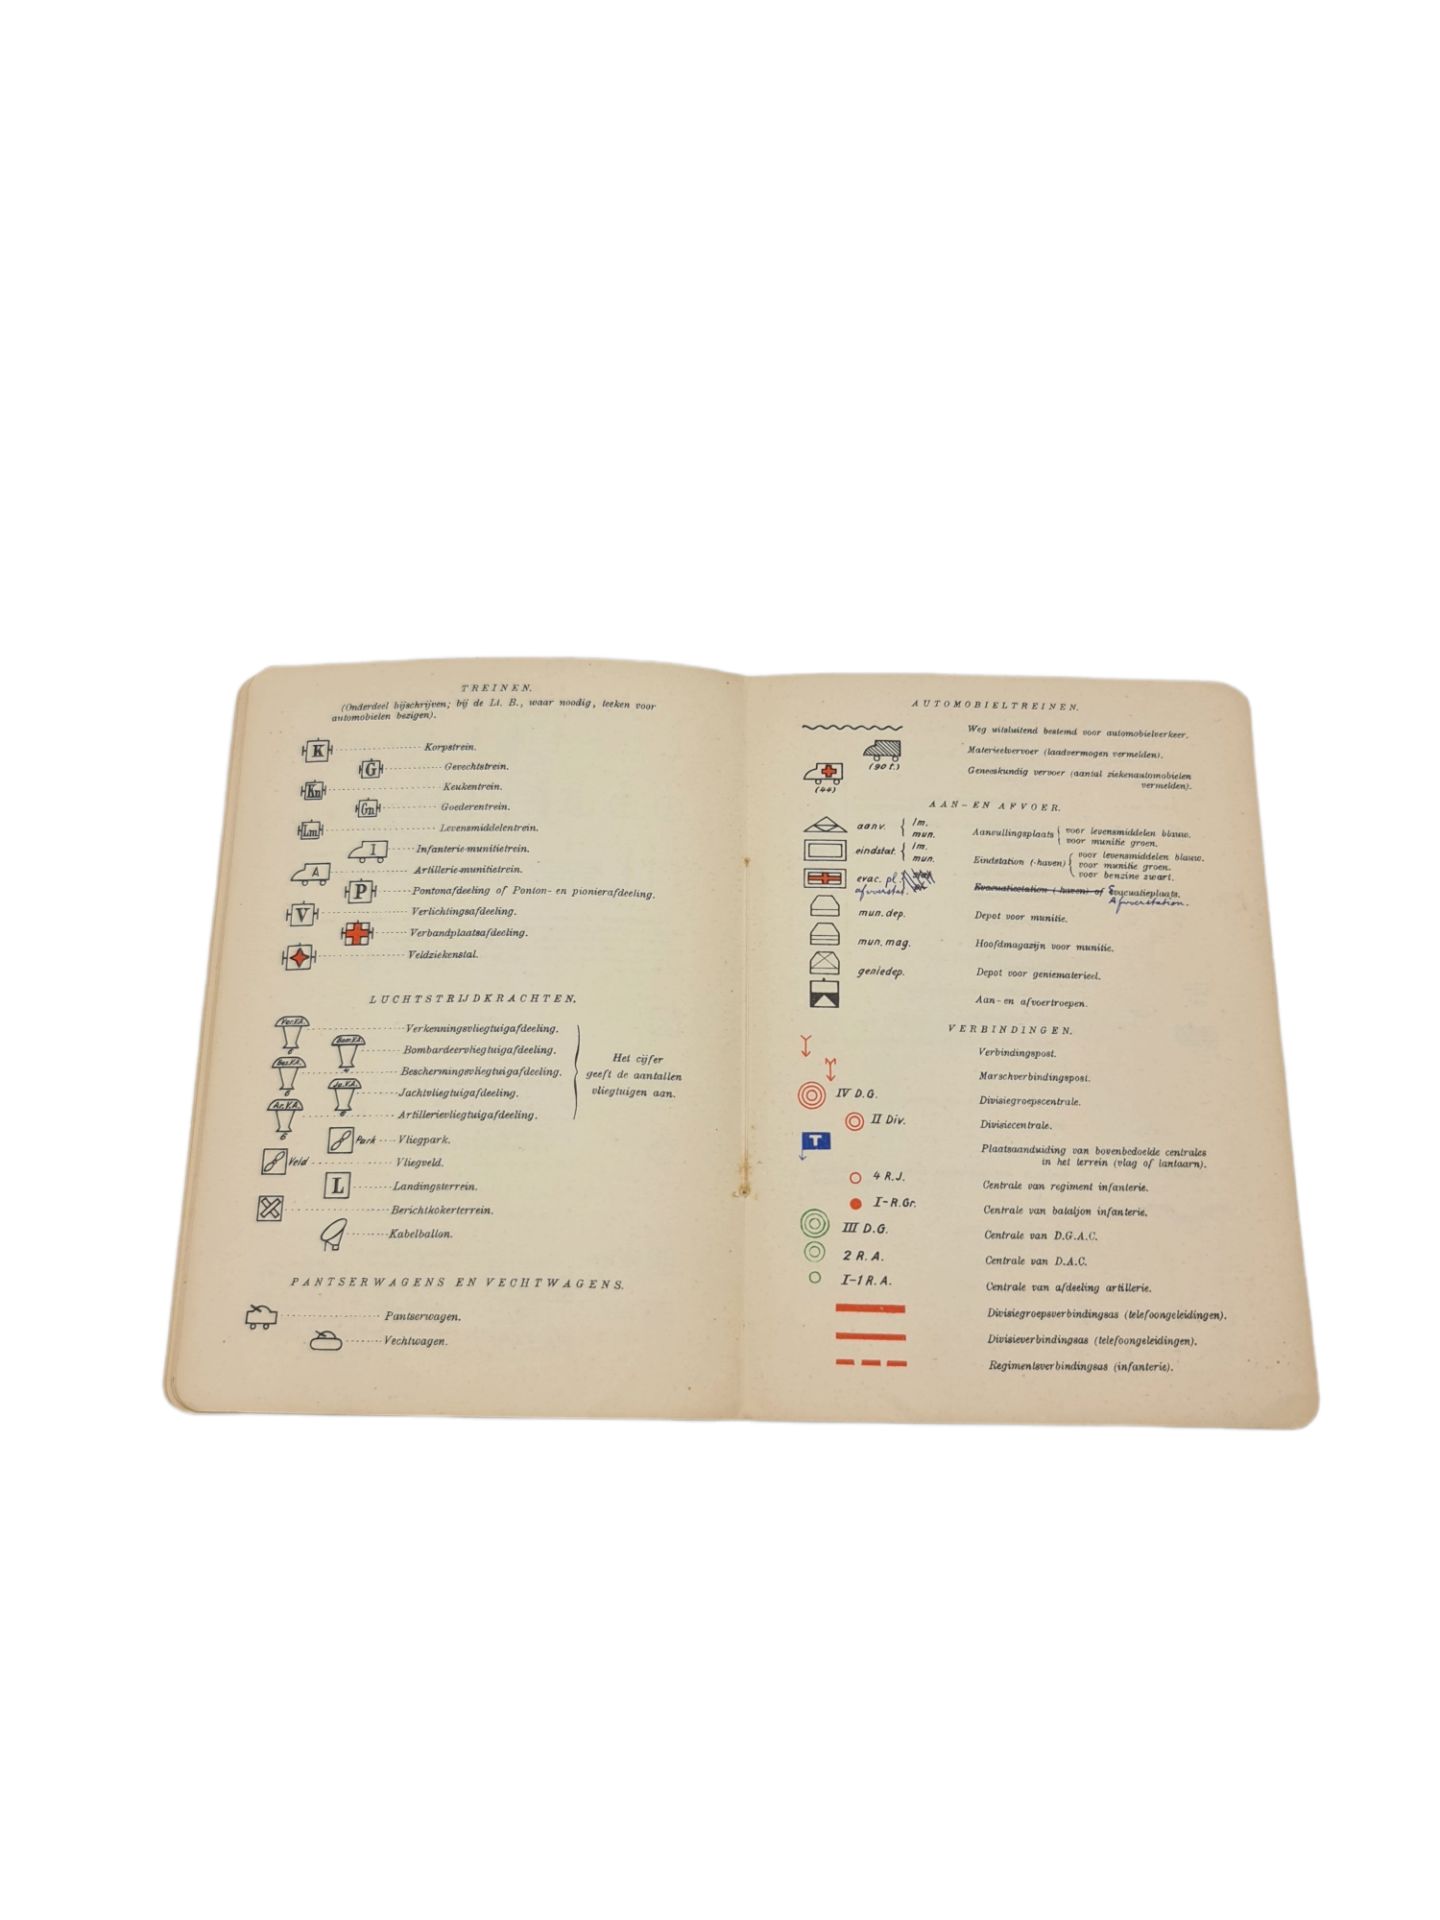 TREINEN.
(Onderdeel bijschrijven; bij de Lt. B., waar noodig, teeken voor
automobielen bezigen).
K Korpstrein.
G Gevechtstrein.
Kn Keukentrein.
Gn Goederentrein.
Lm Levensmiddelentrein.
I Infanterie-munitietrein.
A Artillerie-munitietrein.
P Pontonafdeeling of Ponton- en pionierafdeeling.
V Verlichtingsafdeeling.
Verbandplaatsafdeeling.
Veldziekenstal.
LUCHTSTRIJDKRACHTEN.
Ver.V.A. 6 Verkenningsvliegtuigafdeeling.
Bom.V.A. Bombardeervliegtuigafdeeling.
Bes.V.A. 6 Beschermingsvliegtuigafdeeling.
Ja.V.A. 6 Jachtvliegtuigafdeeling.
Ar.V.A. 6 Artillerievliegtuigafdeeling.
Het cijfer
geeft de aantallen
vliegtuigen aan.
Park Vliegpark.
Veld Vliegveld.
L Landingsterrein.
Berichtkokerterrein.
Kabelballon.
PANTSERWAGENS EN VECHTWAGENS.
Pantserwagen.
Vechtwagen.
AUTOMOBIELTREINEN.
Weg uitsluitend bestemd voor automobielverkeer.
(90 t.) Materieelvervoer (laadvermogen vermelden).
(44) Geneeskundig vervoer (aantal ziekenautomobielen
vermelden).
AAN- EN AFVOER.
aanv. { lm. mun. Aanvullingsplaats { voor levensmiddelen blauw.
voor munitie groen.
eindstat. { lm. mun. Eindstation (-haven) { voor levensmiddelen blauw.
voor munitie groen.
voor benzine zwart.
evac. pl. Evacuatiestation (-haven) of Evacuatieplaats.
afvoerstat. Afvoerstation.
mun. dep. Depot voor munitie.
mun. mag. Hoofdmagazijn voor munitie.
geniedep. Depot voor geniematerieel.
Aan- en afvoertroepen.
VERBINDINGEN.
Verbindingspost.
Marschverbindingspost.
IV D.G. Divisiegroepscentrale.
II Div. Divisiecentrale.
T Plaatsaanduiding van bovenbedoelde centrales
in het terrein (vlag of lantaarn).
4 R.J. Centrale van regiment infanterie.
I-R.Gr. Centrale van bataljon infanterie.
III D.G. Centrale van D.G.A.C.
2 R.A. Centrale van D.A.C.
I-1 R.A. Centrale van afdeeling artillerie.
Divisiegroepsverbindingsas (telefoongeleidingen).
Divisieverbindingsas (telefoongeleidingen).
Regimentsverbindingsas (infanterie).